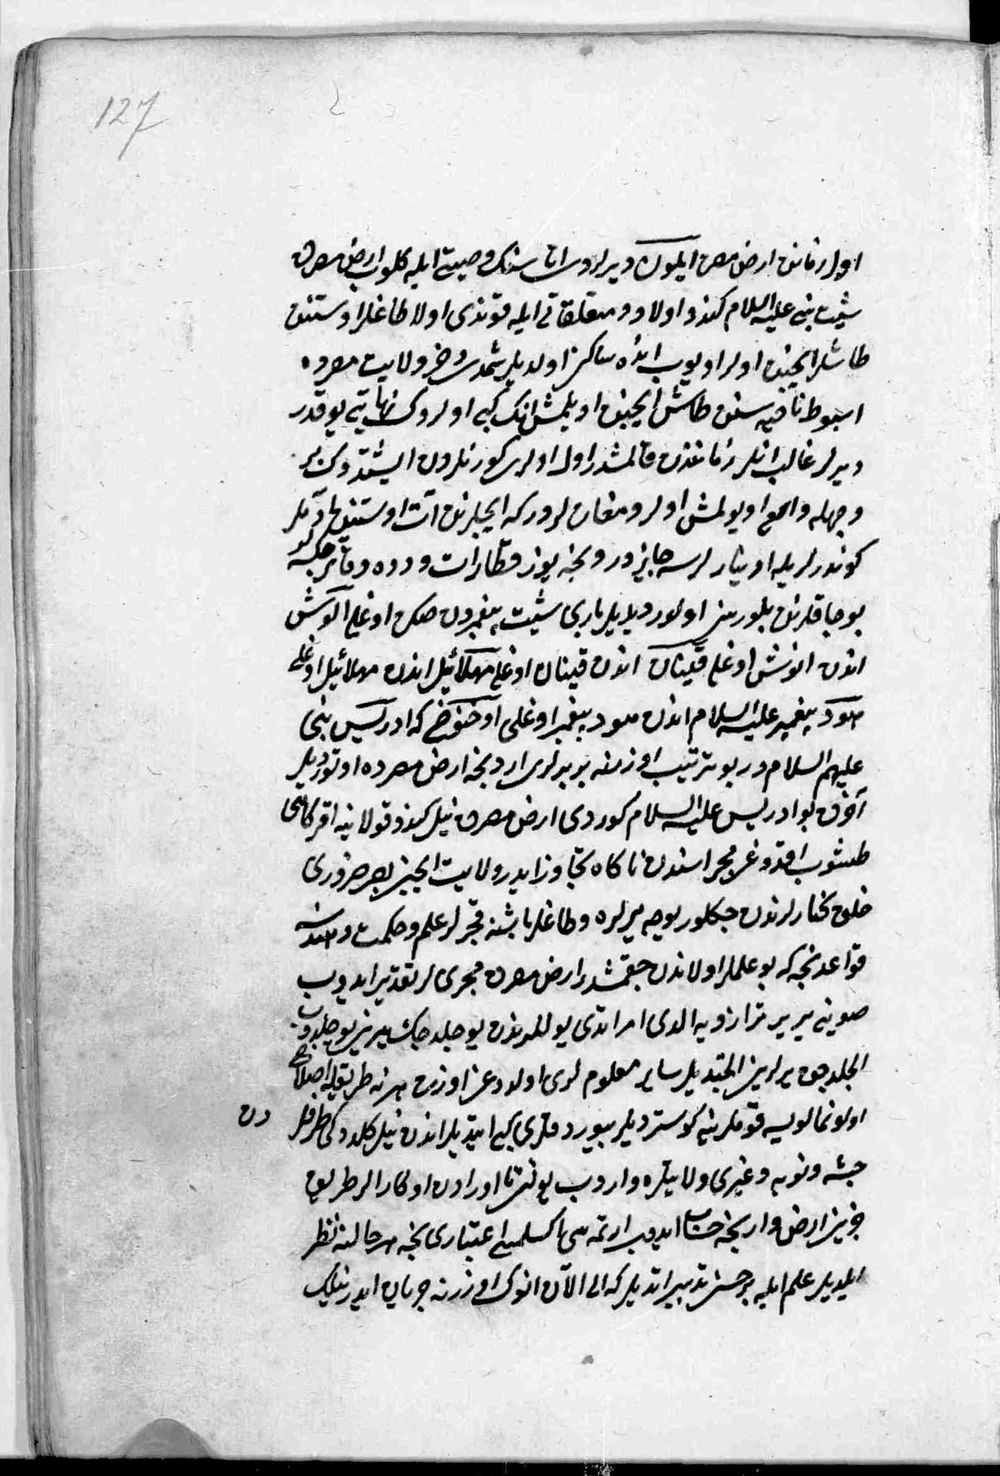 127
اول زمانن ارض مصره ایلون دیرلردی اتاسنک وصیتی ایله کلوب ارض مصرده
شیث نبی علیه السلام کندو اولاد و متعلقاتی ایله قوندی اولا طاغلر اوستنده
طاشلر ایچنده اولر اویوب انده ساکن اولدیلر شمدی دخی ولایت مصرده
اسیوط ناحیه سنده طاش ایچنده اویلمش انک کبی اولروک نهایتی یوقدر
دیرلر غالب انلر زماننده قالمشدر اول اولری کورنلردن ایشتدوک بر
وجهله واسع اویولمش اولر و مغاره لردر که ایچلرنده آت اوستنده آدملر
کوندرلریله اوینارلرسه جایزدر و نیجه یوز قطار ات و دوه و قاتر چکسه
بوجاقلرنده بلورسز اولور دیدیلر باری شیث پیغمبردن صکره اوغلی انوش
اندن انوش اوغلی قینان اندن قینان اوغلی مهلائیل اندن مهلائیل اوغلی
هود پیغمبر علیه السلام اندن هود پیغمبر اوغلی اخنوخ که ادریس نبی
علیهم السلام در بو ترتیب اوزرنه بربرلری اردنجه ارض مصرده اوتوردیلر
آخر بو ادریس علیه السلام کوردی ارض مصرده نیل کندو قولاینه اقر کاهی
طشوب اقدوغی مجراسندن ناکاه تجاوز ایدر ولایت ایچنه ضرری
خلق کنارلرندن چکلور یوجه یرلره و طاغلر باشنه قچرلر علم و حکمت و هندسه
قواعدنجه که بو علملر اولاندن چقمشدر ارض مصرده مجری لر تقدیر ایدوب
صوینی یر یر ترازویه الدی امر اتدی یوللرندن یوجلدجک یرین یوجلدوب
الچلدجق یرلرین الچتدیلر سایر معلوملری اولدوغی اوزره هر نه طریقله اصلاح
اولونمالویسه قوملرینه کوستردیلر بیوردقلری کبی ایتدیلر اندن نیل کلدوکی طرفلر دن
حبشه و نوبه و غیری ولایتلره واروب یوقری تا اورادن اوکارالر طریق
جزیز ارض واریجنه حساب ایدوب ارتمه سی اکسلمسی اعتباری نیجه هر حالنه نظر
ایلدیلر علم ایله بر حسن تدبیر اتدیلر که الی الآن انوک اوزرنه جریان ایدر نیلک